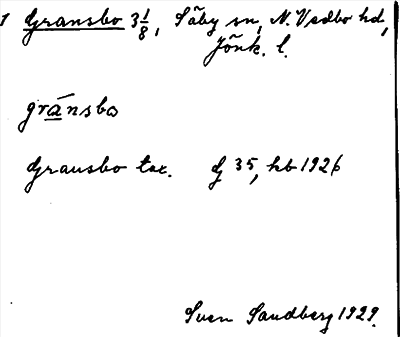 1 Gransbo 3 1/8, Säby sn, N. Vedbo hd,
Jönk. l.
gránsbo
Gransbo tax. G 35, kb 1926
Sven Sandberg 1929.